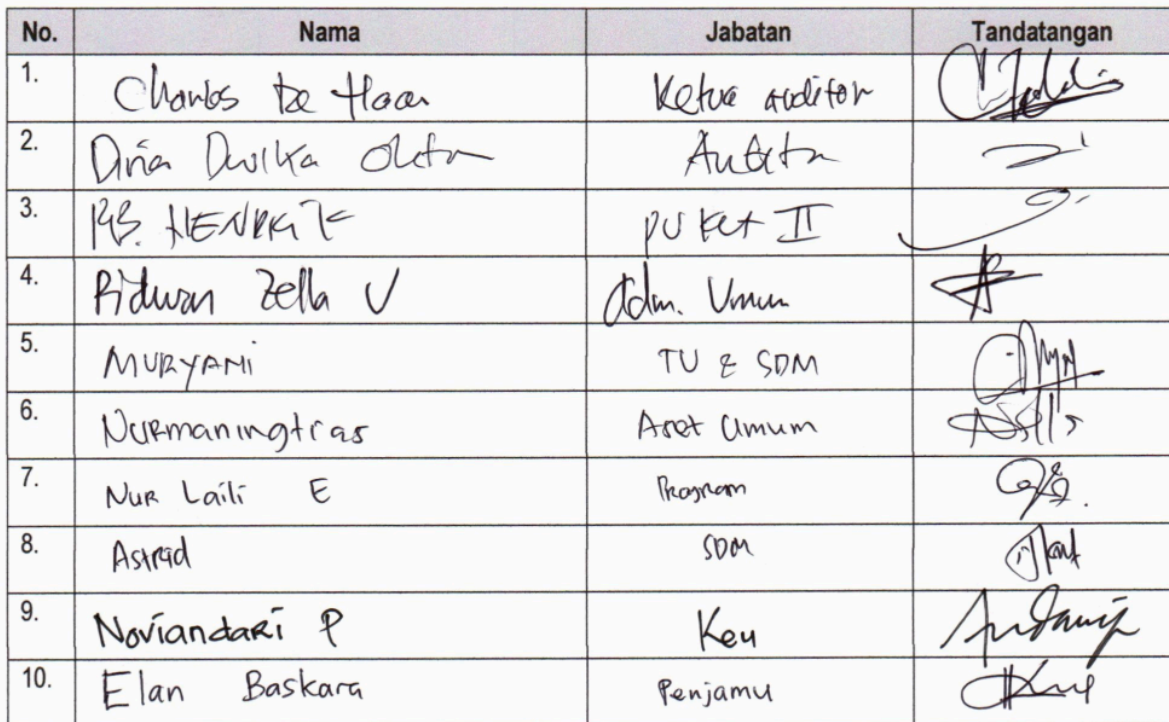 No. Nama Jabatan Tandatangan
1. Charles De Haan Ketua auditor
2. Dina Dwika Auditor
3. RB. HENDRIK PUKET II
4. Ridwan Zella V Adm. Umum
5. MURYAMI TU & SDM
6. Nurmaningtias Aset Umum
7. Nur Laili E Program
8. Astrid SDM
9. Noviandari P Keu
10. Elan Baskara Penjamu